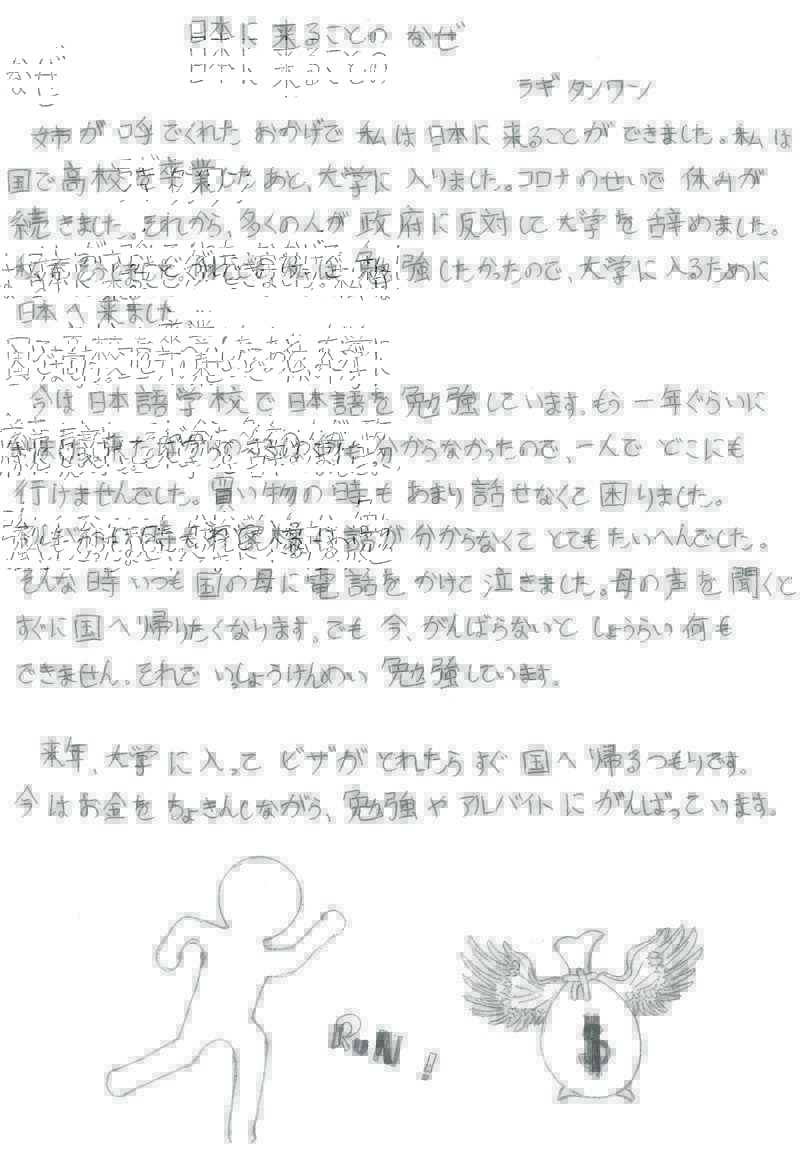 日本に来ることの なぜ
ラギ タンワン
姉が呼でくれた おかげで 私は 日本に 来ることが できました。私は
国で高校を卒業した あと、大学に 入りました。コロナのせいで 休みが
続きました。それから、多くの人が 政府に反対して 大学を 辞めました。
強したかったので、大学に入るために
日本へ 来ました
今は 日本語学校で 日本語を 勉強しています。もう 一年ぐらいに
分からなかったので、一人で どこにも
行けませんでした。買い物の 時も あまり 話せなくて 困りました。
が 分からなくて とても たいへんでした。
そんな 時 いつも 国の母に 電話を かけて 泣きました。母の声を 聞くと
すぐに 国へ 帰りたくなります。でも 今、がんばらないと しょうらい 何も
できません。それで いっしょうけんめい 勉強しています。
来年、大学に入って ビザが とれたら すぐ 国へ 帰るつもりです。
今はお金を ちょきんしながら、勉強や アルバイトに がんばっています。
RuN!
$